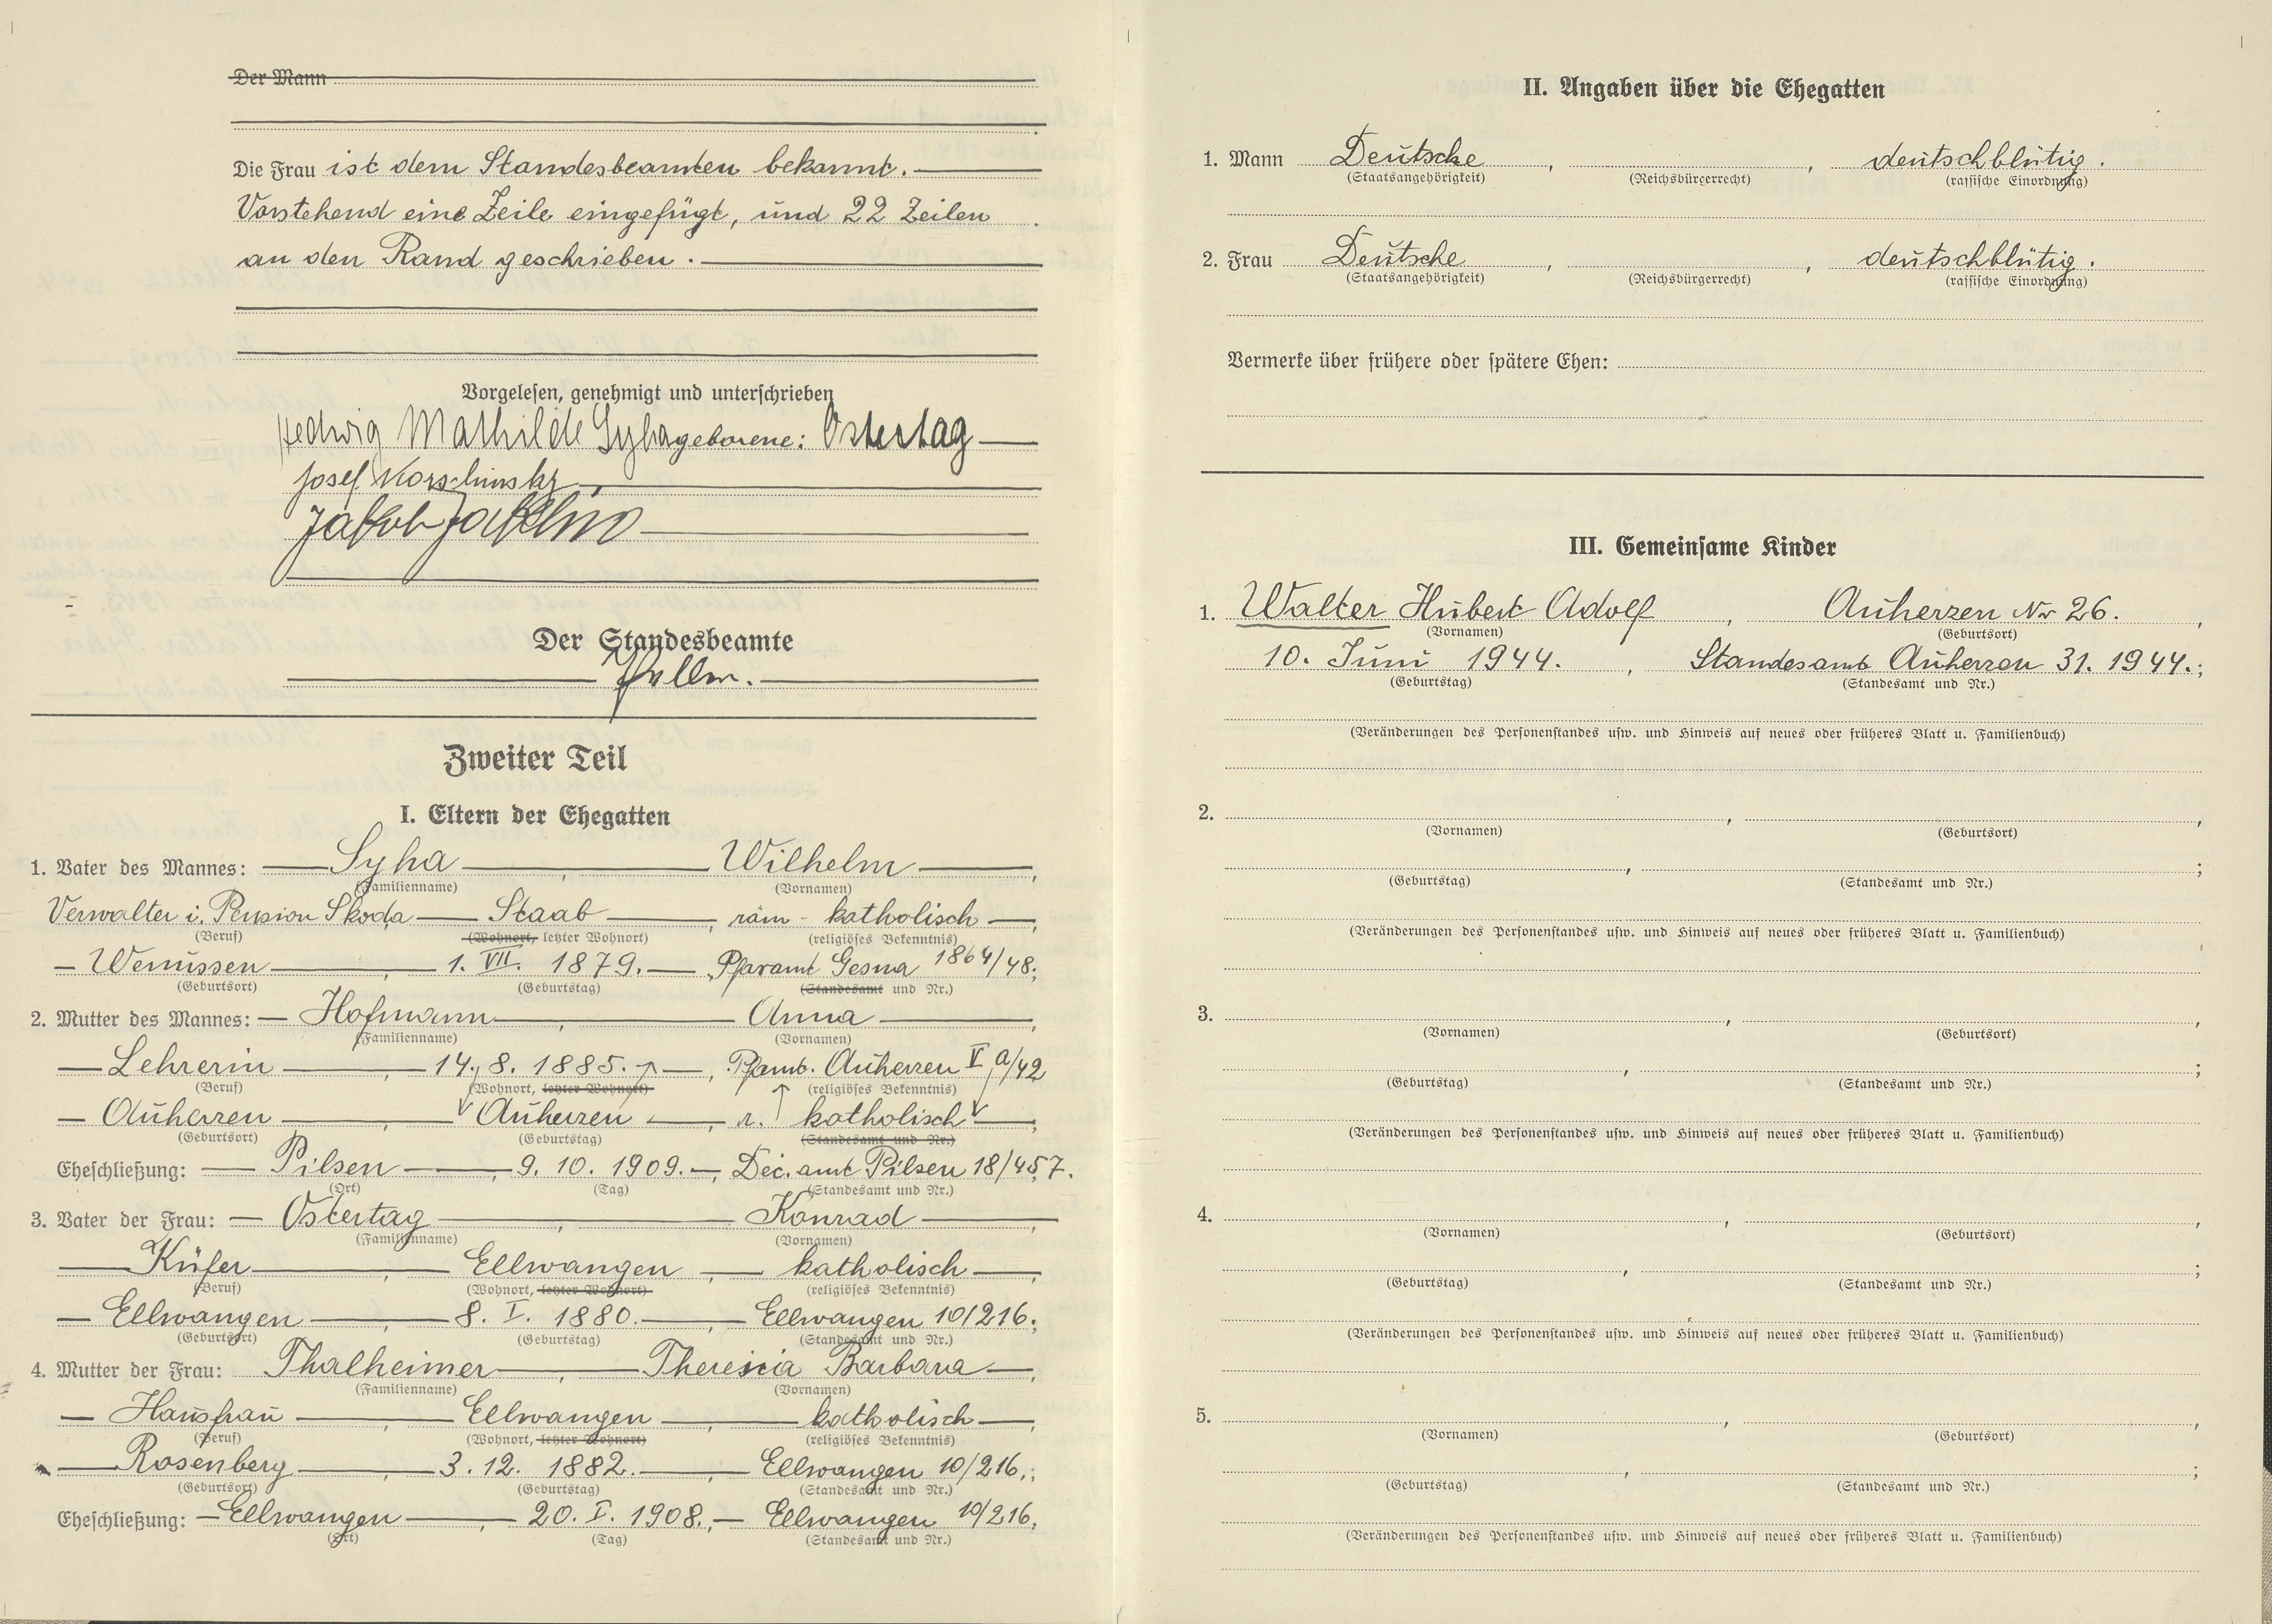 Der Mann
Die Frau ist dem Standesbeamten bekannt.
Vorstehend eine Zeile eingefügt, und 22 Zeilen
an den Rand geschrieben.
Vorgelesen, genehmigt und unterschrieben
Hedwig Mathilde Syha geborene: Ostertag
Josef
Jakob
Der Standesbeamte
Zweiter Teil
I. Eltern der Ehegatten
1. Vater des Mannes: Syha, Wilhelm,
(Familienname) (Vornamen)
Verwalter i. Pension Skoda, Staab, röm - katholisch,
(Beruf) (Wohnort, letzter Wohnort) (religiöses Bekenntnis)
Wenussen, 1. VII. 1879., Pfaramt Gesna 1864/48;
(Geburtsort) (Geburtstag) (Standesamt und Nr.)
2. Mutter des Mannes: Hofmann, Anna,
(Familienname) (Vornamen)
Lehrerin, 14. 8. 1885., Pfamt. Auherzen V, a/42
(Beruf) (Wohnort, letzter Wohnort) (religiöses Bekenntnis)
Auherzen, Auherzen, r. katholisch;
(Geburtsort) (Geburtstag) (Standesamt und Nr.)
Eheschließung: Pilsen, 9. 10. 1909., Dec. amt Pilsen 18/457.
(Ort) (Tag) (Standesamt und Nr.)
3. Vater der Frau: Ostertag, Konrad,
(Familienname) (Vornamen)
Küfer, Ellwangen, katholisch,
(Beruf) (Wohnort, letzter Wohnort) (religiöses Bekenntnis)
Ellwangen, 8. I. 1880., Ellwangen 10/216;
(Geburtsort) (Geburtstag) (Standesamt und Nr.)
4. Mutter der Frau: Thalheimer, Theresia Barbara,
(Familienname) (Vornamen)
Hausfrau, Ellwangen, katholisch,
(Beruf) (Wohnort, letzter Wohnort) (religiöses Bekenntnis)
Rosenberg, 3. 12. 1882., Ellwangen 10/216,;
(Geburtsort) (Geburtstag) (Standesamt und Nr.)
Eheschließung: Ellwangen, 20. I. 1908., Ellwangen 10/216.
(Ort) (Tag) (Standesamt und Nr.)
II. Angaben über die Ehegatten
1. Mann Deutsche, , deutschblütig.
(Staatsangehörigkeit) (Reichsbürgerrecht) (rassische Einordnung)
2. Frau Deutsche, , deutschblütig.
(Staatsangehörigkeit) (Reichsbürgerrecht) (rassische Einordnung)
Vermerke über frühere oder spätere Ehen:
III. Gemeinsame Kinder
1. Walter Hubert Adolf, Auherzen Nr 26.,
(Vornamen) (Geburtsort)
10. Juni 1944., Standesamt Auherzen 31. 1944.;
(Geburtstag) (Standesamt und Nr.)
(Veränderungen des Personenstandes usw. und Hinweis auf neues oder früheres Blatt u. Familienbuch)
2. , ,
(Vornamen) (Geburtsort)
, ;
(Geburtstag) (Standesamt und Nr.)
(Veränderungen des Personenstandes usw. und Hinweis auf neues oder früheres Blatt u. Familienbuch)
3. , ,
(Vornamen) (Geburtsort)
, ;
(Geburtstag) (Standesamt und Nr.)
(Veränderungen des Personenstandes usw. und Hinweis auf neues oder früheres Blatt u. Familienbuch)
4. , ,
(Vornamen) (Geburtsort)
, ;
(Geburtstag) (Standesamt und Nr.)
(Veränderungen des Personenstandes usw. und Hinweis auf neues oder früheres Blatt u. Familienbuch)
5. , ,
(Vornamen) (Geburtsort)
, ;
(Geburtstag) (Standesamt und Nr.)
(Veränderungen des Personenstandes usw. und Hinweis auf neues oder früheres Blatt u. Familienbuch)